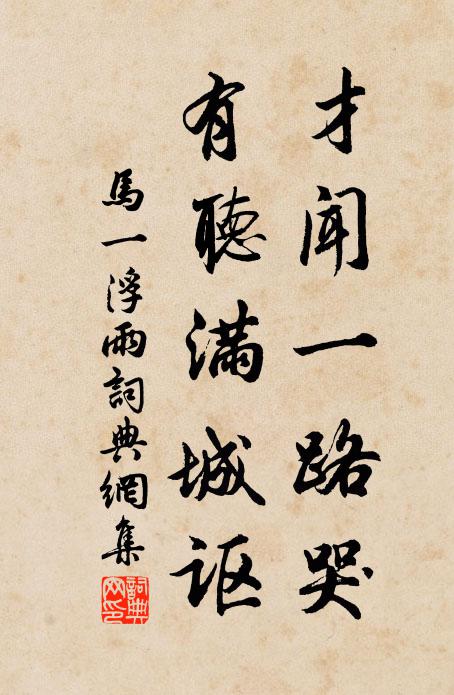 才闻一路哭
有聽满城讴
馬一浮雨詞典網集
詞典网印